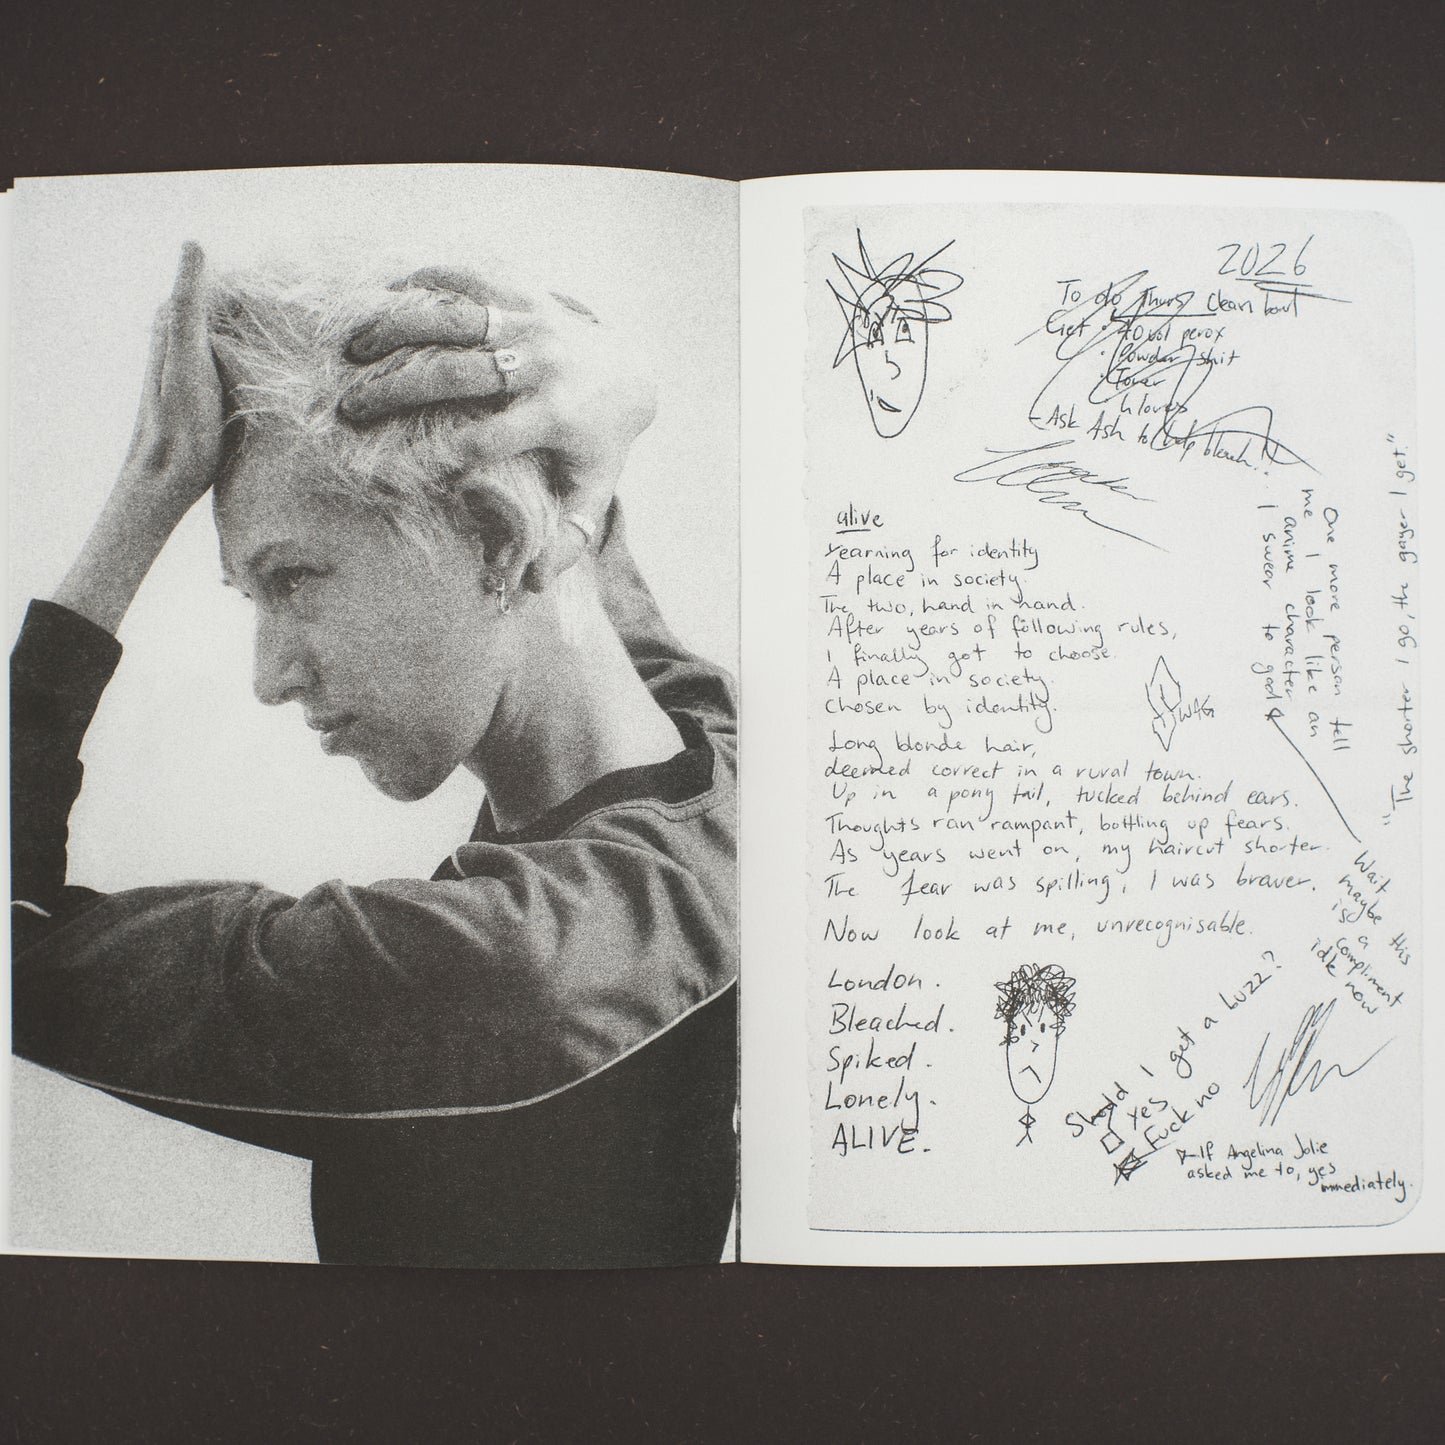 2026
To do Thurs clean bowl
Get • 40 vol perox
• Powder shit
• Toner
• Gloves
- Ask Ash to help bleach!!
alive
Yearning for identity
A place in society.
The two, hand in hand.
After years of following rules,
I finally got to choose.
A place in society.
Chosen by identity.
SWAG
Long blonde hair,
deemed correct in a rural town.
Up in a pony tail, tucked behind ears.
Thoughts ran rampant, bottling up fears.
As years went on, my haircut shorter.
The fear was spilling, I was braver.
Now look at me, unrecognisable.
London.
Bleached.
Spiked.
Lonely.
ALIVE.
One more person tell
me I look like an
anime character
I swear to god
"The shorter I go, the gayer I get."
Wait
maybe this
is a
compliment
idk now
Should I get a buzz?
yes
Fuck no
If Angelina Jolie
asked me to, yes
immediately.